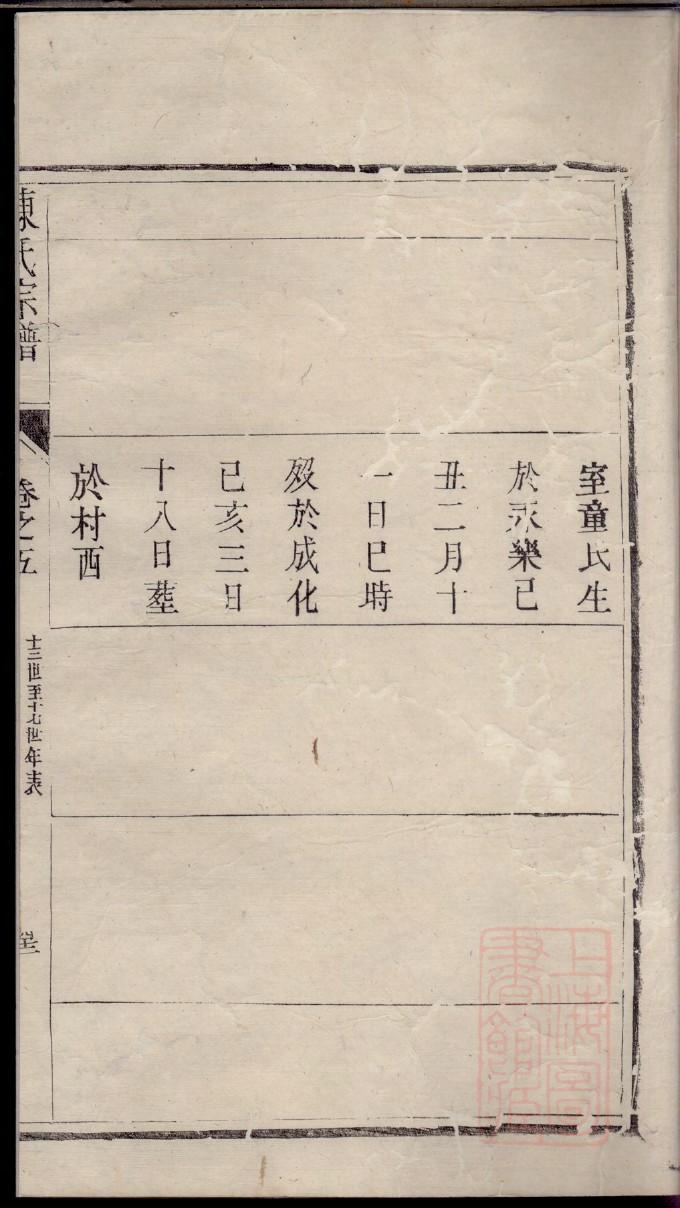 室童氏生
於永樂己
丑二月十
一日巳時
殁於成化
己亥三日
十八日塟
於村西
陳氏宗譜
卷之五
十三世至十七世年表
上海圖
書館藏